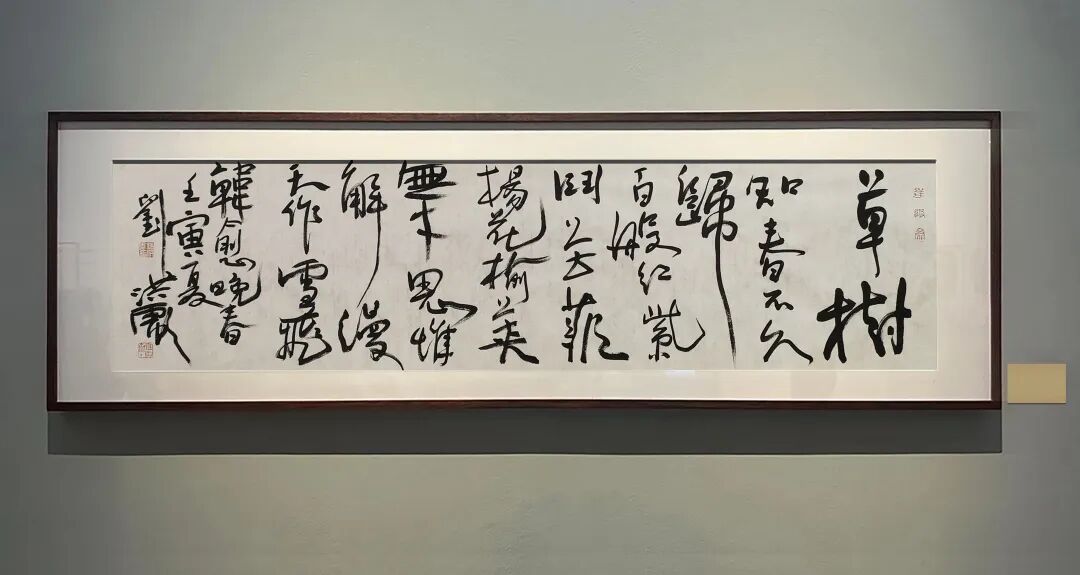 草樹
知春不久
歸
百般紅紫
鬥芳菲
楊花榆莢
無才思惟
解漫
天作雪飛
韓愈晚春
壬寅夏
劉洪彪